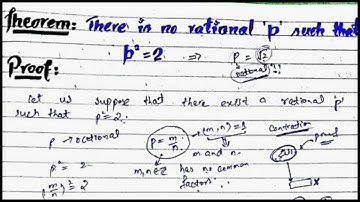 Theorem: There is no rational 'p' such that
p² = 2. ⇒ p = √2
rational ?!
Proof:
Let us suppose that there exist a rational 'p'
such that p² = 2.
p → rational
p = m/n → (m,n)=1
m and n
has no common
factors
m,n∈Z
p² = 2
(m/n)² = 2